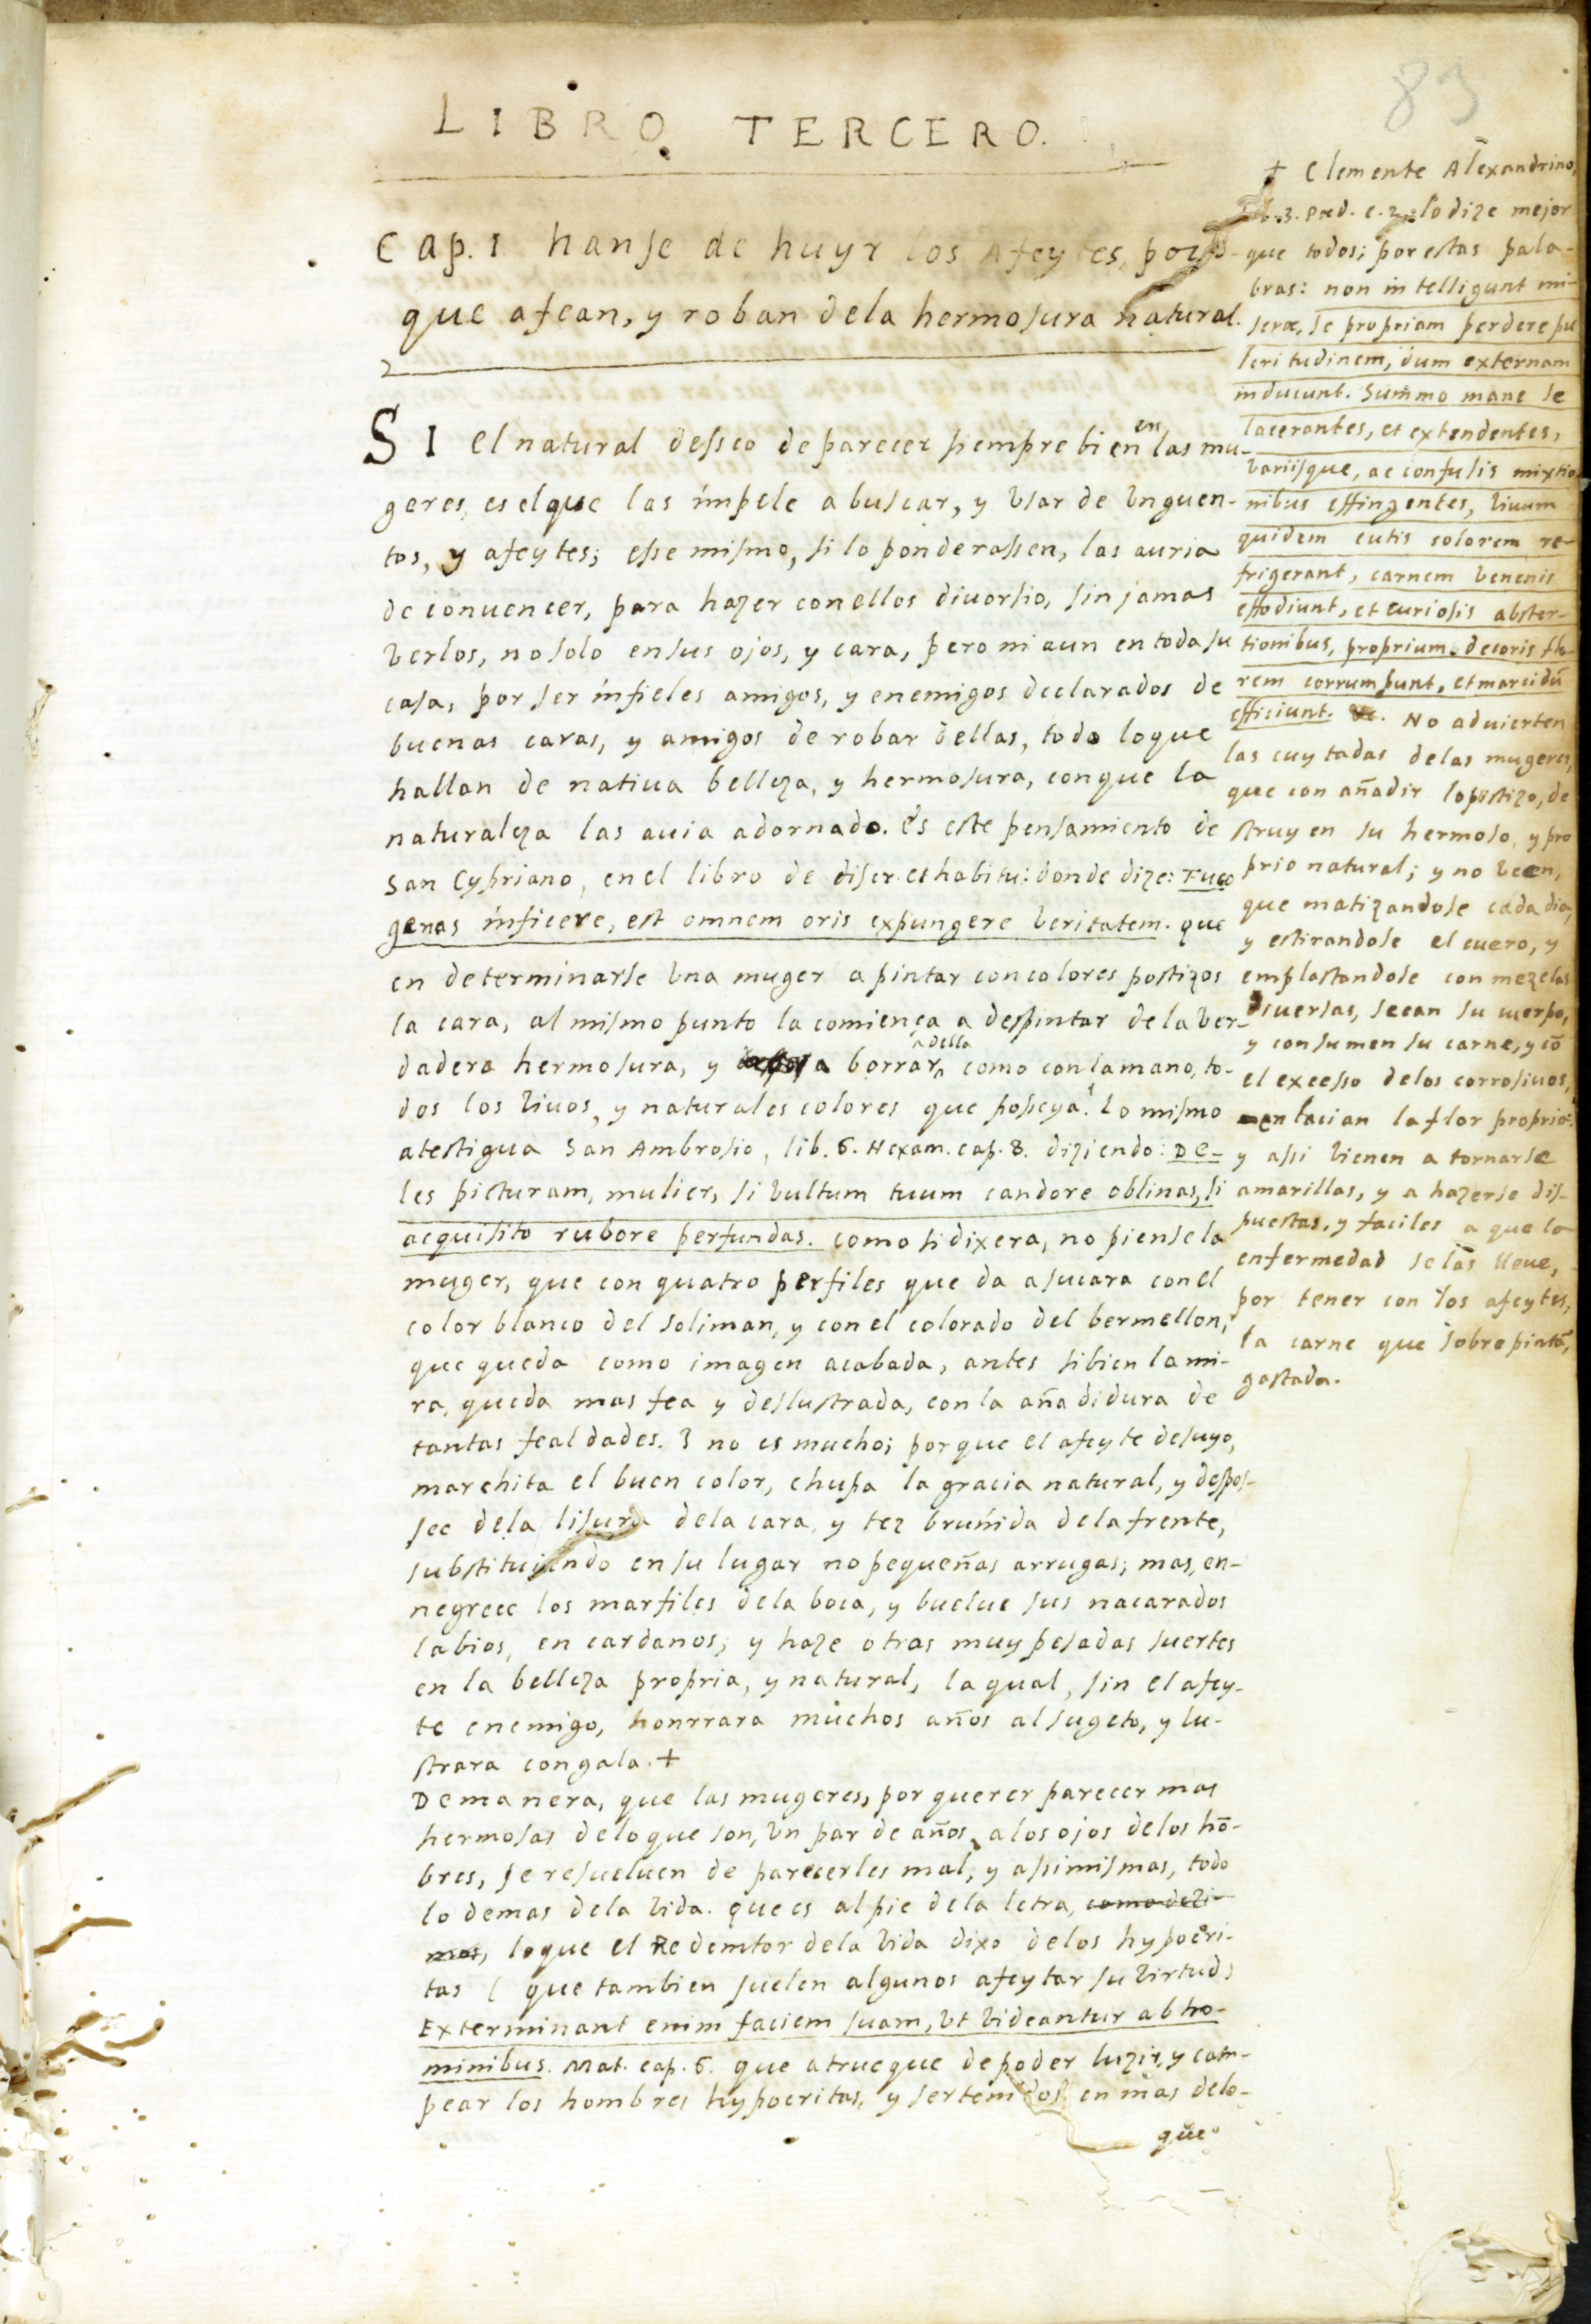 83
LIBRO TERCERO.
Cap. 1 hanse de huyr los Afeytes, por-
que afean, y roban dela hermosura natural.
SI el natural desseo de parecer siempre bien en las mu-
geres, es el que las impele a buscar, y vsar de vnguen-
tos, y afeytes; esse mismo, si lo ponderassen, las auria
de conuencer, para hazer con ellos diuorsio, sin jamas
verlos, no solo en sus ojos, y cara, pero ni aun en toda su
casa, por ser infieles amigos, y enemigos declarados de
buenas caras, y amigos de robar dellas, todo loque
hallan de natiua belleza, y hermosura, conque la
naturaleza las auia adornado. és este pensamiento de
San Cypriano, en el libro de discr. et habitu: donde dize: Fuco
genas inficere, est omnem oris expungere veritatem. que
en determinarse vna muger a pintar con colores postizos
la cara, al mismo punto la comiença a despintar de la ver-
dadera hermosura, y a borrar della como con la mano, to-
dos los viuos, y naturales colores que posseya. Lo mismo
atestigua San Ambrosio, lib. 6. Hexam. cap. 8. diziendo: De-
les picturam, mulier, si vultum tuum candore oblinas, si
acquisito rubore perfundas. como si dixera, no piense la
muger, que con quatro perfiles que da a su cara con el
color blanco del soliman, y con el colorado del bermellon,
que queda como imagen acabada, antes si bien la mi-
ra, queda mas fea y deslustrada, con la añadidura de
tantas fealdades. Y no es mucho; porque el afeyte de suyo,
marchita el buen color, chupa la gracia natural, y despos-
see dela lisura dela cara, y tez bruñida dela frente,
substituyendo en su lugar no pequeñas arrugas; mas, en-
negrece los marfiles dela boca, y buelue sus nacarados
labios, en cardanos; y haze otras muy pesadas suertes
en la belleza propria, y natural, la qual, sin el afey-
te enemigo, honrrara muchos años al sugeto, y lu-
strara con gala. +
Demanera, que las mugeres, por querer parecer mas
hermosas delo que son, vn par de años, a los ojos delos hō-
bres, se resueluen de parecerles mal, y assimismas, todo
lo demas dela vida. que es al pie dela letra, como dezi-
mos, loque el Redemtor dela vida dixo delos hypocri-
tas (que tambien suelen algunos afeytar su virtud)
Exterminant enim faciem suam, vt videantur ab ho-
minibus. Mat. cap. 6. que a trueque de poder luzir, y cam-
pear los hombres hypocritas, y ser tenidos en mas delo-
que
+ Clemente Alexandrino,
lib. 3. Pæd. c. 2. lo dize mejor
que todos; por estas pala-
bras: non intelligunt mi-
seræ, se propriam perdere pu
lcritudinem, dum externam
inducunt. Summo mane se
lacerantes, et extendentes,
variisque, ac confusis mixtio
nibus effingentes, viuum
quidem cutis colorem re-
frigerant, carnem venenis
effodiunt, et curiosis abster-
tionibus, proprium decoris flo-
rem corrumpunt, et marcidū
efficiunt. &c. No aduierten
las cuytadas delas mugeres,
que con añadir lo postizo, de
struyen su hermoso, y pro
prio natural; y no veen,
que matizandose cada dia,
y estirandose el cuero, y
emplastandose con mezclas
diuersas, secan su cuerpo,
y consumen su carne, y cō
el excesso delos corrosiuos,
enlacian la flor propria:
y assi vienen a tornarse
amarillas, y a hazerse dis-
puestas, y faciles a que la
enfermedad se las lleue,
por tener con los afeytes,
la carne que sobrepintā,
gastada.